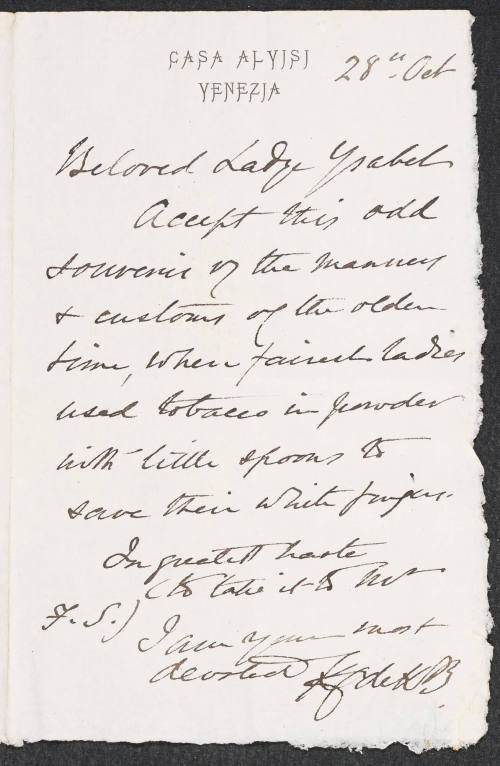 CASA ALVISI
VENEZIA
28th Oct
Beloved Ladye Ysabel
Accept this odd
souvenir of the manners
& customs of the olden
time, when fairest ladies
used tobacco in powder
with little spoons to
save their white fingers.
In greatest haste
(to take it to Mr
F. S.)
I am your most
devoted KdeKB